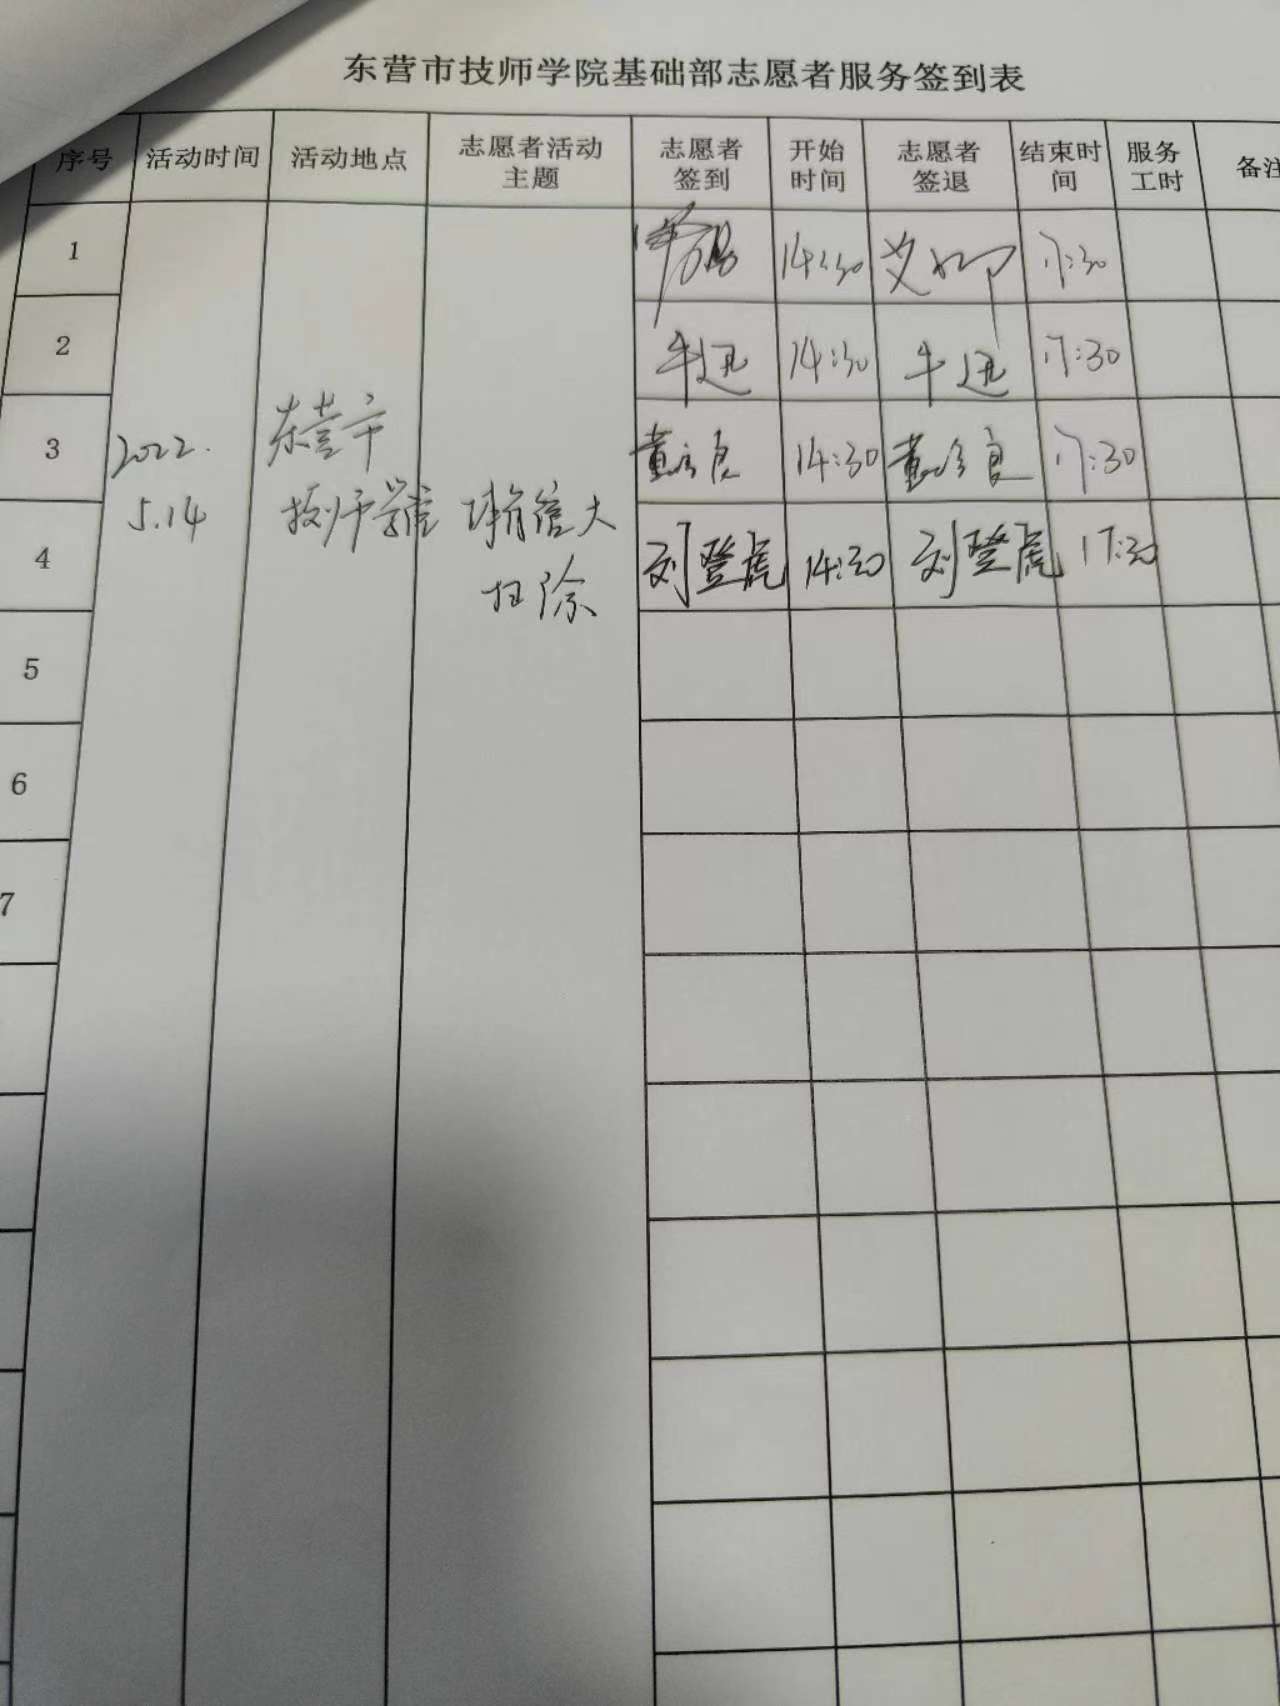 东营市技师学院基础部志愿者服务签到表
序号 活动时间 活动地点 志愿者活动主题 志愿者签到 开始时间 志愿者签退 结束时间 服务工时 备注
1 14:30 17:30
2 牛迅 14:30 牛迅 17:30
3 黄良 14:30 黄良 17:30
4 刘登虎 14:30 刘登虎 17:30
2022.
5.14
东营市
技师学院
大
扫除
5
6
7